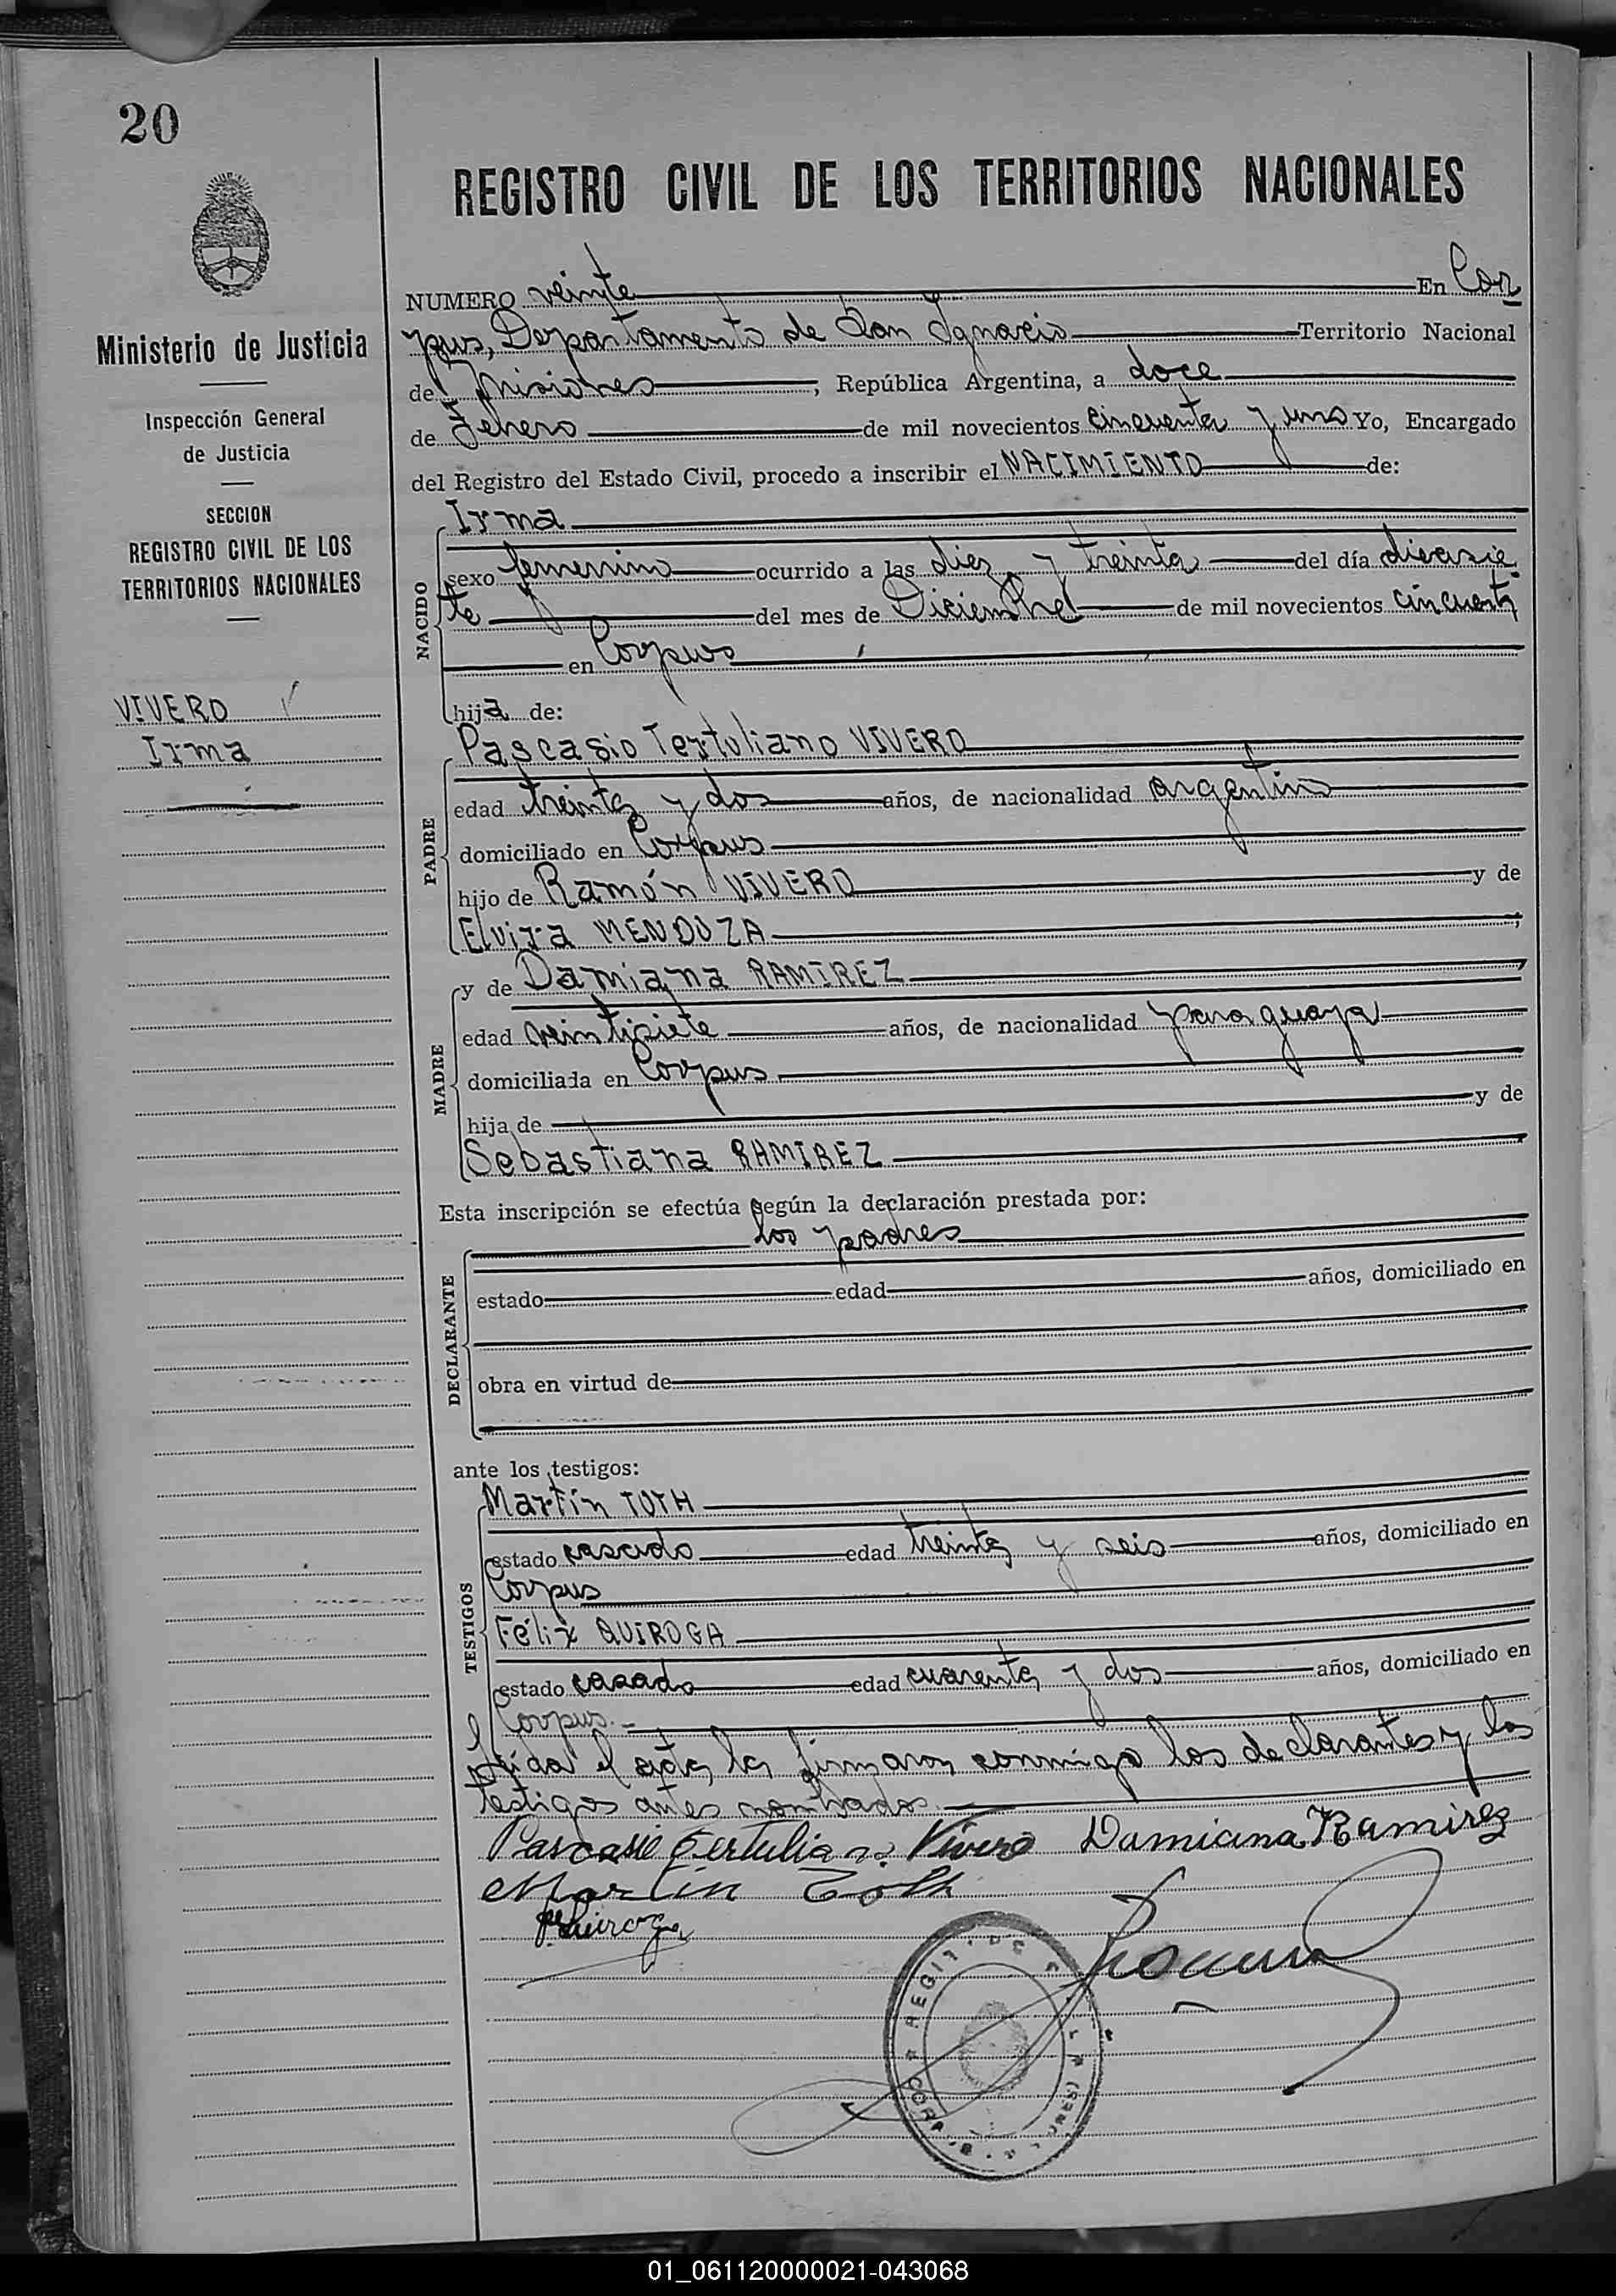 20
Ministerio de Justicia
Inspección General
de Justicia
SECCION
REGISTRO CIVIL DE LOS
TERRITORIOS NACIONALES
VIVERO
Irma
REGISTRO CIVIL DE LOS TERRITORIOS NACIONALES
NUMERO veinte En Cor
pus, Departamento de San Ignacio Territorio Nacional
de Misiones, República Argentina, a doce
de Febrero de mil novecientos cincuenta y uno Yo, Encargado
del Registro del Estado Civil, procedo a inscribir el NACIMIENTO de:
NACIDO
Irma
sexo femenino ocurrido a las diez y treinta del día diecisie
te del mes de Diciembre de mil novecientos cincuenta
en Corpus
hija de:
PADRE
Pascasio Tertuliano VIVERO
edad treinta y dos años, de nacionalidad argentino
domiciliado en Corpus
hijo de Ramón VIVERO y de
Elvira MENDOZA;
MADRE
y de Damiana RAMIREZ
edad veintisiete años, de nacionalidad paraguaya
domiciliada en Corpus
hija de y de
Sebastiana RAMIREZ
Esta inscripción se efectúa según la declaración prestada por:
DECLARANTE
los padres
estado edad años, domiciliado en
obra en virtud de
ante los testigos:
TESTIGOS
Martín TOTH
estado casado edad treinta y seis años, domiciliado en
Corpus
Félix QUIROGA
estado casado edad cuarenta y dos años, domiciliado en
Corpus.
Leída el acta, la firmaron conmigo los declarantes y los
testigos antes nombrados.
Pascasio Tertuliano Vivero Damiana Ramirez
Martin Toth
Quiroga
01_061120000021-043068